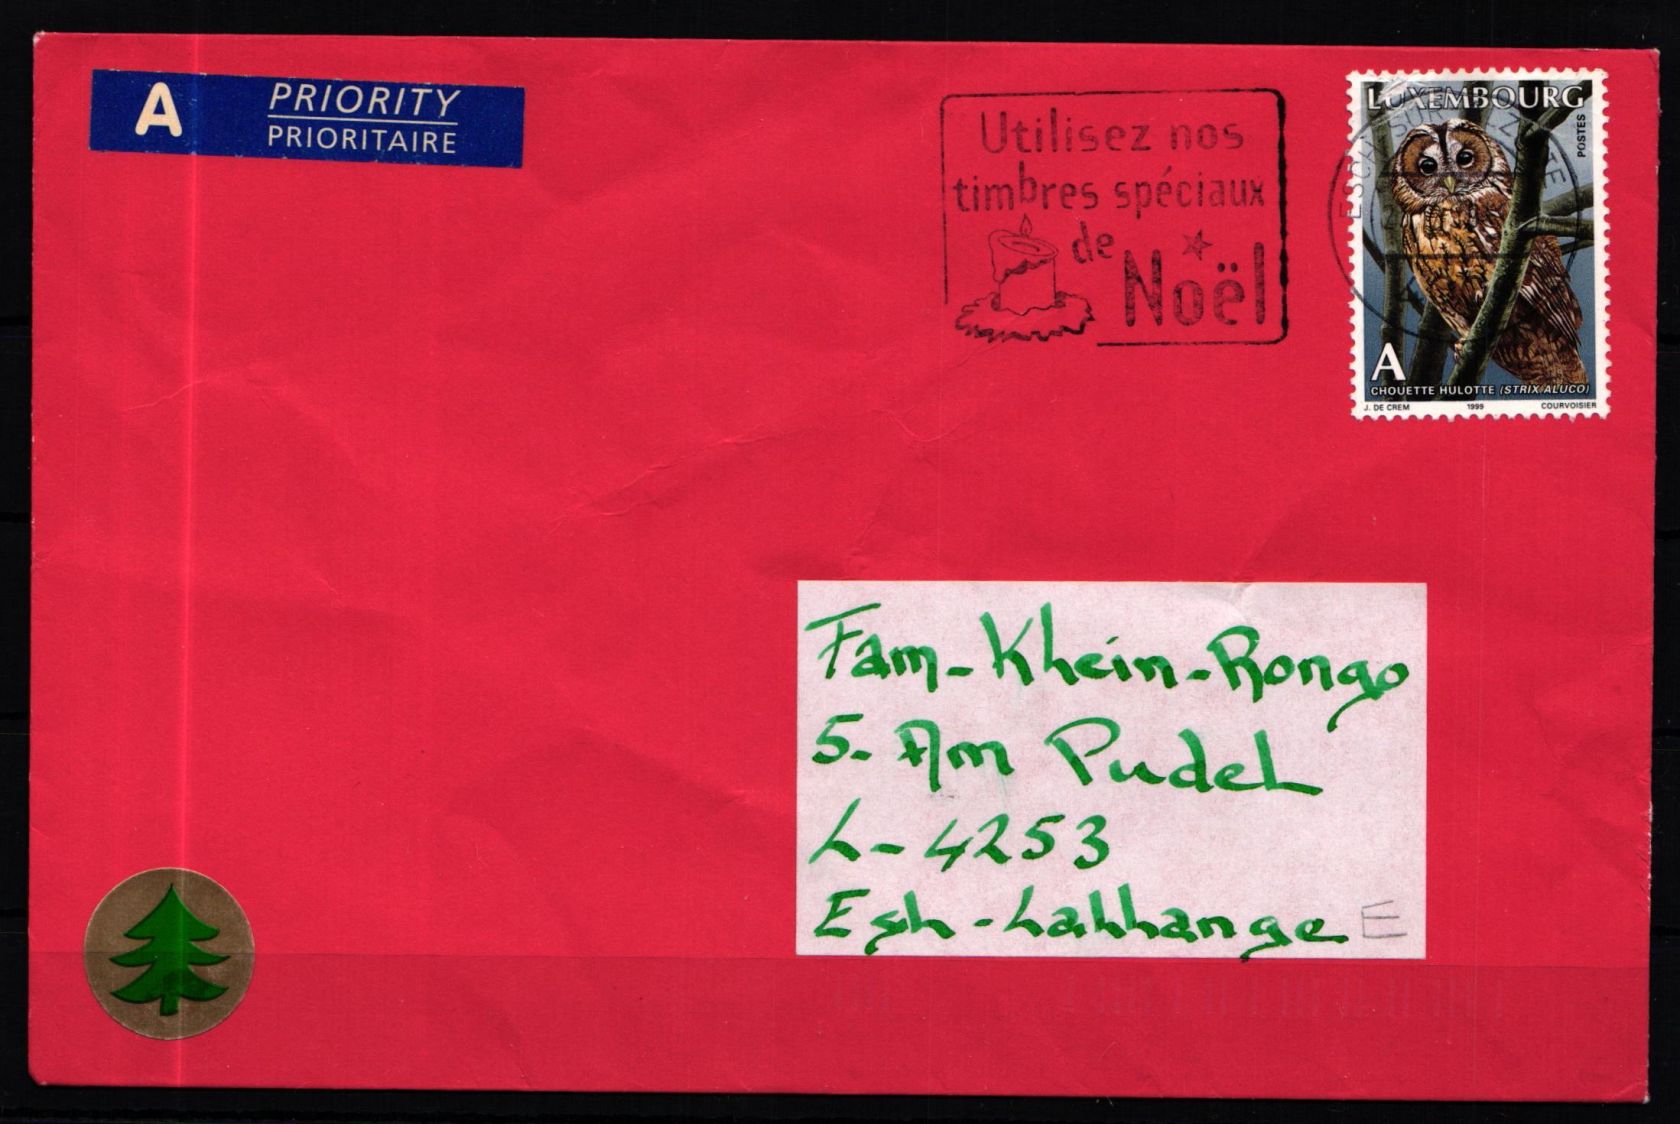 A PRIORITY
PRIORITAIRE
Utilisez nos
timbres spéciaux
de Noël
LUXEMBOURG
POSTES
ESCH-SUR-ALZETTE
A
CHOUETTE HULOTTE (STRIX ALUCO)
J. DE CREM 1999 COURVOISIER
Fam-Khein-Rongo
5. Am Pudel
L-4253
Esh-Lallhange E